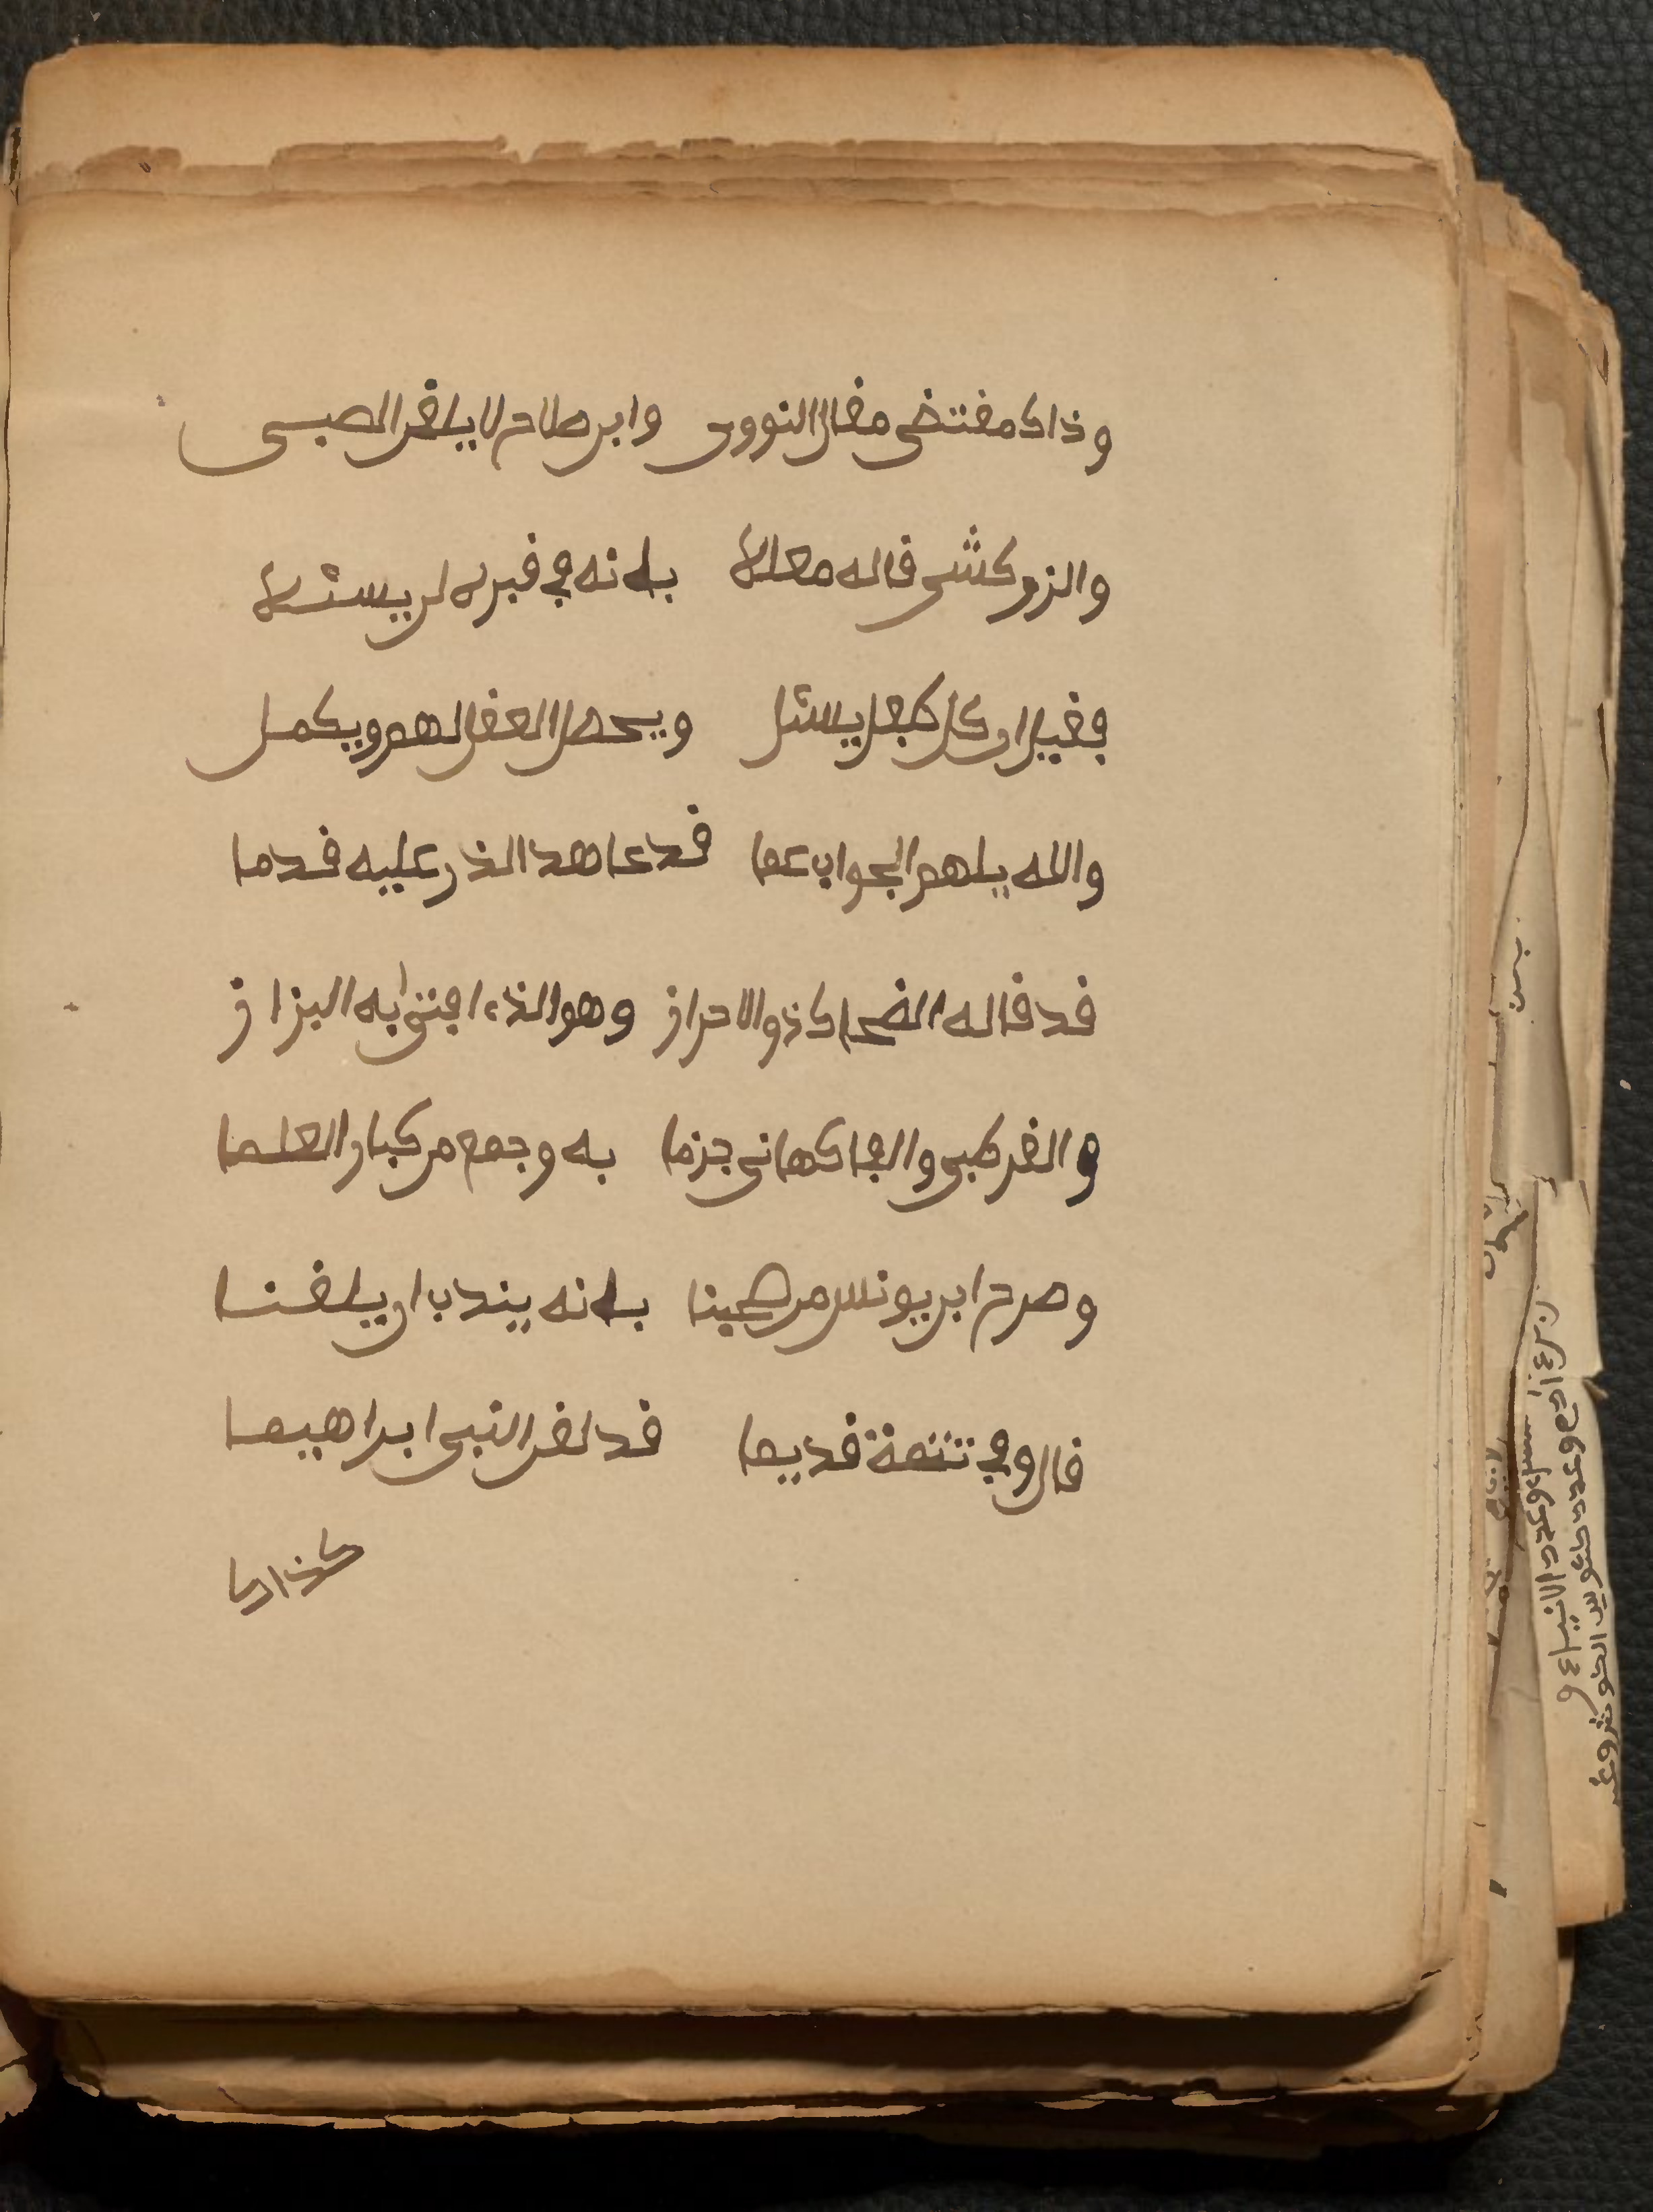 وذاك مقتضى مقال النووى وابن صلاح لا يلقن الصبى
والزركشى قاله معللا بانه في قبره لن يسئلا
فقيل ان كل طفل يسئل ويحصل العقل لهم ويكمل
والله يلهم الجواب عما قد عاهد الذر عليه قدما
قد قاله الضحاك ذو الاحراز وهو الذى افتى به البزاز
والقرطبى والفاكهانى جزما به وجمع من كبار العلما
وصرح ابن يونس من صحبنا بانه يندب ان يلقنا
قال وفي تتمة قديما قد لقن النبى ابراهيما
كذا